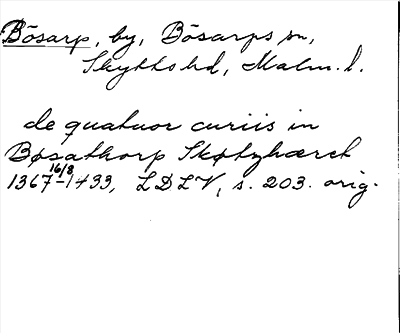 Bösarp, by, Bösarps sn,
Skytts hd, Malm. l.
de quatuor curiis in
Bøsathorp Skøtzhæret
1367 16/8 - 1433, LDLV, s. 203. orig.